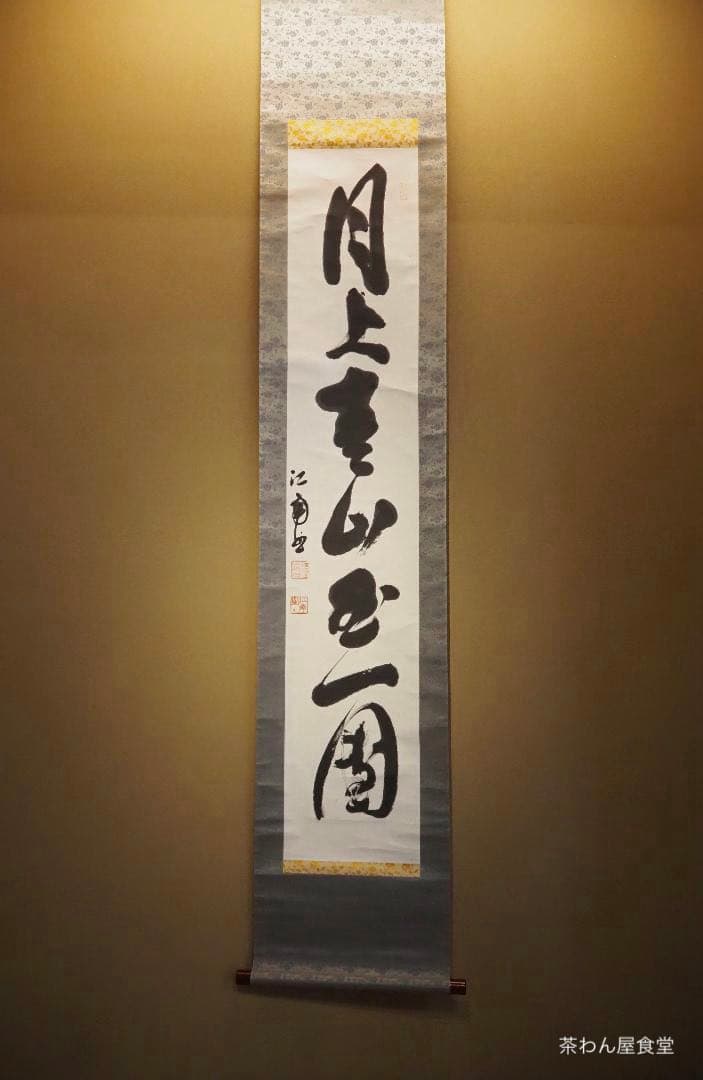 月上青山玉一團
江南書
茶わん屋食堂